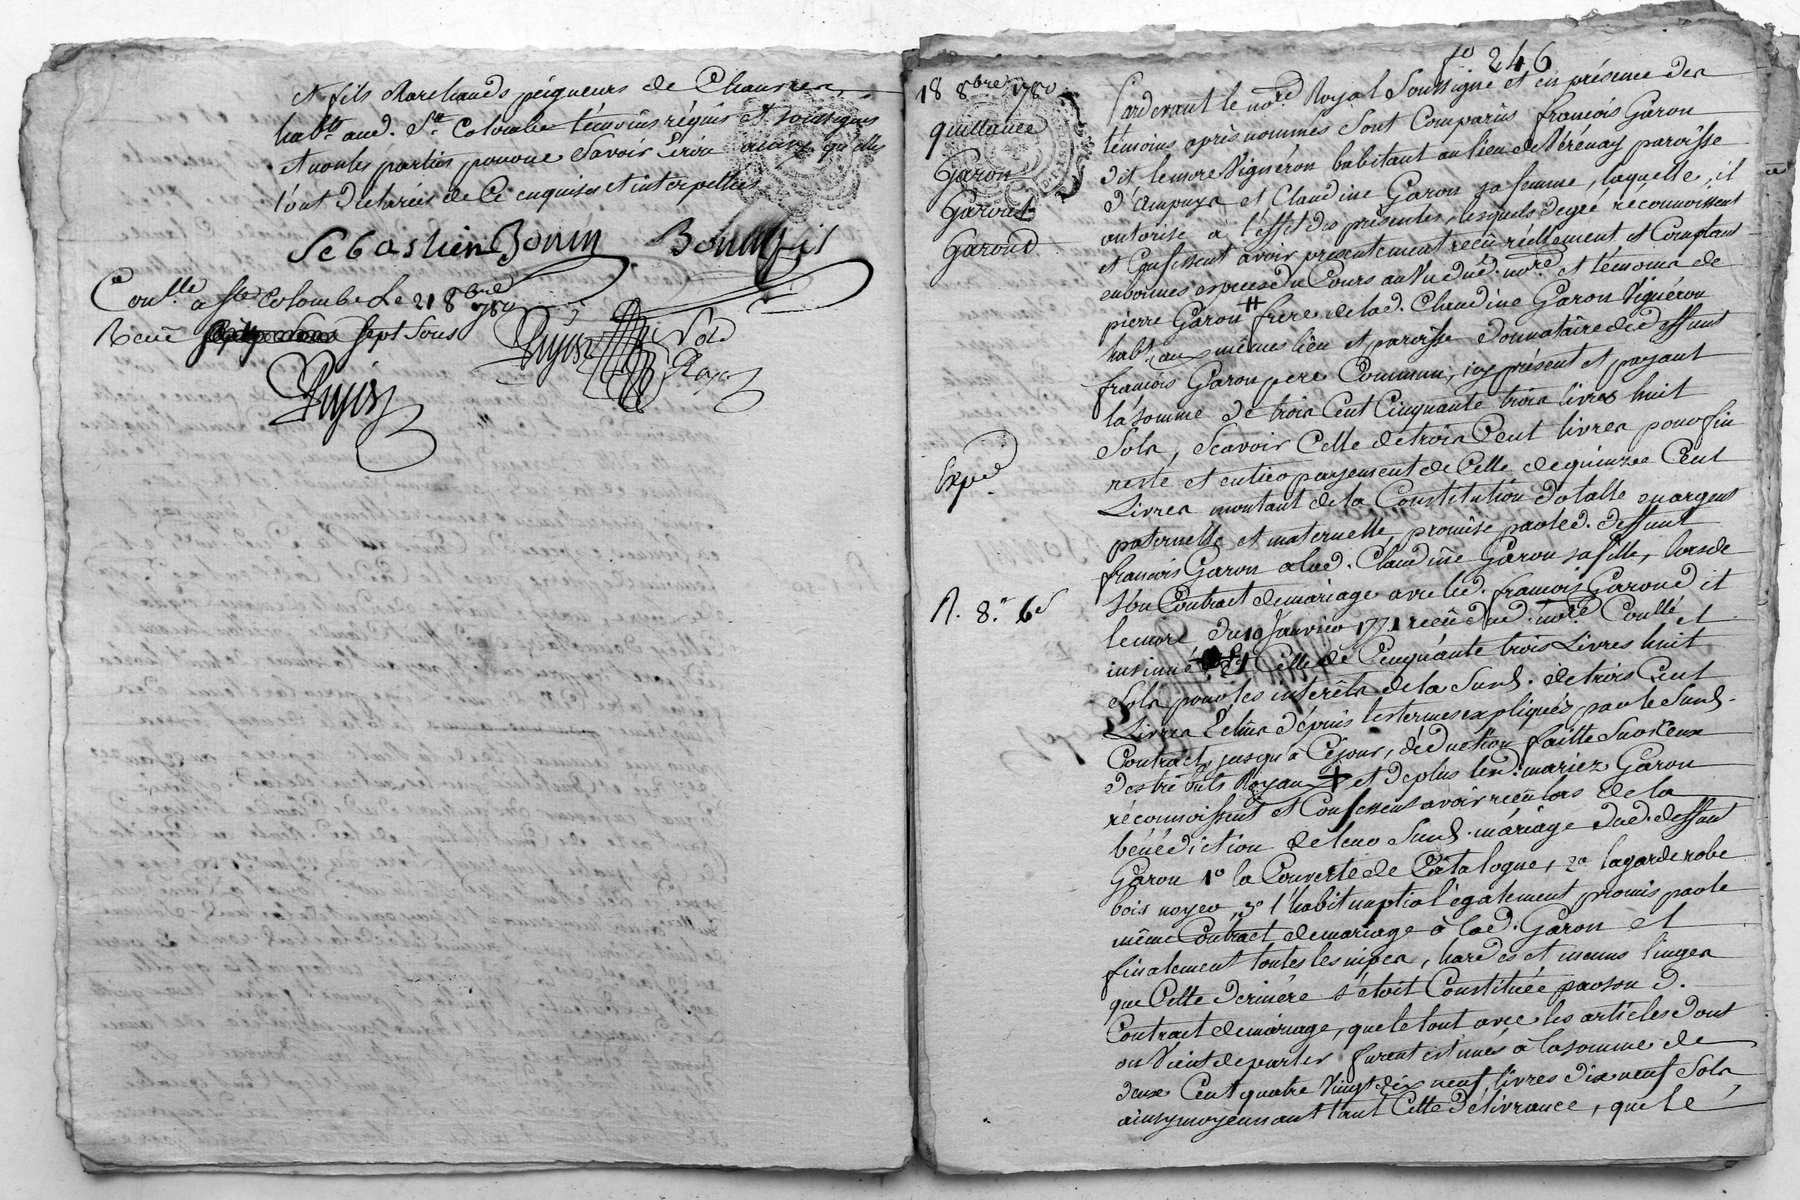 et fils Marchands peigneurs de Chanvres,
habts aud. Ste Colombe témoins réquis et soussignés
et non les parties pour ne Savoir Ecrire ainsy qu'elles
l'ont déclarées de Ce enquises et interpellées
Sebastien Bonin Bonin fils
Conllé a Ste Colombe Le 21 8bre 1780
Recu sept sous
Pujos Nore
Royal
Pujos
fo 246
18 8bre 1780
quittance
Garon
Garond
Garond
Expé
R. 8.# 6s
Pardevant le nore Royal Soussigné et en présence des
témoins après nommés Sont Comparus françois Garon
dit lemore Vigneron habitant au lieu de Vérénay paroisse
d'Ampuys et Claudine Garon sa femme, laquelle, il
autorise a l'effet des présentes, lesquels de gré réconnoissent
et Confessent avoir présentement reçu réellement et Comptant
en bonnes espèces du Cours au Vu dud. nore et témoins de
pierre Garon # frere de lad. Claudine Garon Vignéron
habt. aux mêmes lieu et paroisse donnataire de deffunt
françois Garon pere Commun, icy présent et payant
la somme de trois Cent Cinquante trois livres huit
Sols, Scavoir Celle de trois Cent livres pour fin
reste et entier payement de Celle de quinze Cent
Livres montant de la Constitution dotalle en argent
paternelle et maternelle, promise par led. deffunt
françois Garon a lad. Claudine Garon sa fille, lors de
son Contract de mariage avec led. françois Garond dit
lemore du 19 Janvier 1771 reçu dud. nore Conllé et
insinué Et Celle de Cinquante trois Livres huit
Sols pour les intérêts de la Susd. de trois Cent
Livres Echus dépuis les termes expliqués par le Susd.
Contract, jusqu'à Ce jour, déduction faitte Sur iceux
des tributs Royaux + et de plus lesd. mariez Garon
réconnoissent et Confessent avoir recu lors de la
bénédiction de leur Susd. mariage dud. deffunt
Garon 1o la Couverte de Catalogne, 2o la garderobe
bois noyer, 3o l'habit nuptial également promis par le
même Contract de mariage à lad. Garon et
finalement toutes les nipes, hardes et menus linges
que Cette derniére s'étoit Constituée par son d.
Contract de mariage, que le tout avec les articles dont
on Vient de parler furent estimés à la somme de
deux Cent quatre Vingt dix neuf livres dix neuf Sols
ainsy moyennant tant Cette délivrance, que le